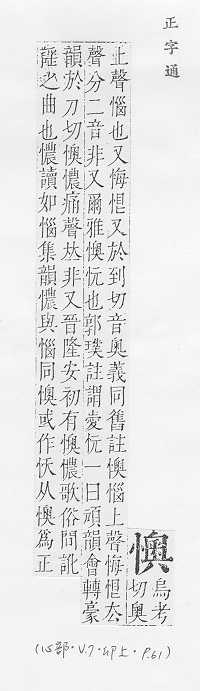 正字通
懊
烏考
切奧
上聲惱也又悔恨又於到切音奧義同舊註懊惱上聲悔恨去
聲分二音非又爾雅懊忨也郭璞註謂愛忨一曰頑韻會轉豪
韻於刀切懊憹痛聲𠀤非又晉隆安初有懊憹歌俗間訛
謠之曲也憹讀如惱集韻憹與惱同懊或作㤇从懊為正
(心部·V.7·卯上·P.61)